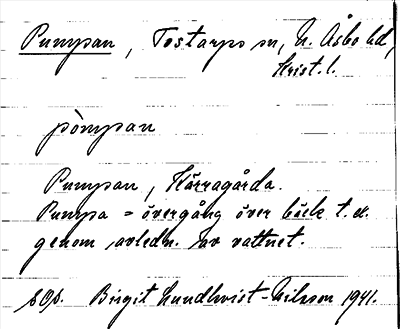 Pumpan, Tostarps sn, N. Åsbo hd,
Krist. l.
pòmpan
Pumpan, Härragårda.
Pumpa = övergång över bäck t. ex.
genom avledn. av vattnet.
Birgit Lundqvist-Nilsson 1941.